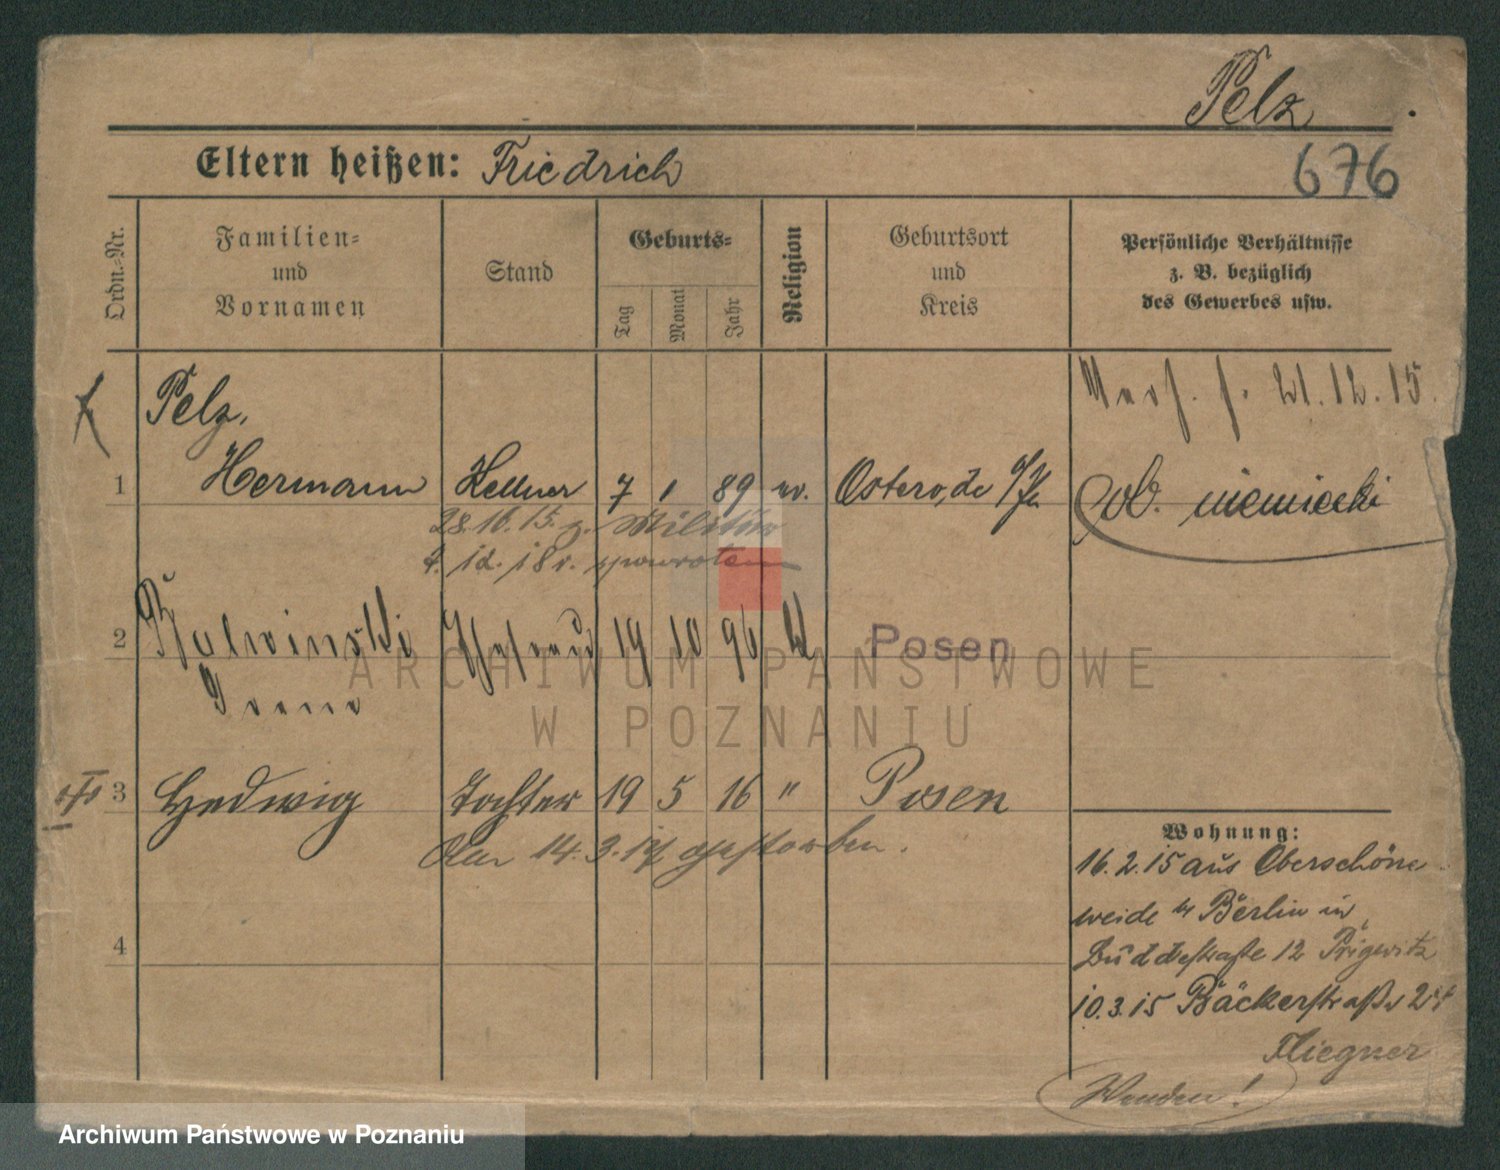 Pelz
Eltern heißen: Friedrich
676
Ordn.-Nr.
Familien-
und
Vornamen
Stand
Geburts-
Tag
Monat
Jahr
Religion
Geburtsort
und
Kreis
Persönliche Verhältnisse
z. B. bezüglich
des Gewerbes usw.
21.12.15.
Pelz,
1 Hermann Kellner 7 1 89 ev. Osterode
ob. niemiecki
28.10.15. z. Militär
4. 12. 18 r. spowrotem
2 Ehefrau 19 10 96 Posen
3 Hedwig Tochter 19 5 16 " Posen
14.3.17 gestorben.
4
Wohnung:
16.2.15 aus Oberschöne-
weide b/ Berlin in
Buddestraße 12
10.3.15 Bäckerstraße 24
Fliegner
Wenden!
ARCHIWUM PAŃSTWOWE
W POZNANIU
Archiwum Państwowe w Poznaniu